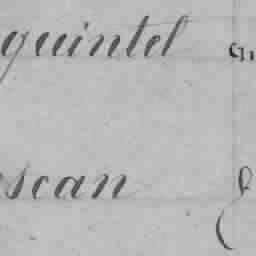 quintel
scan